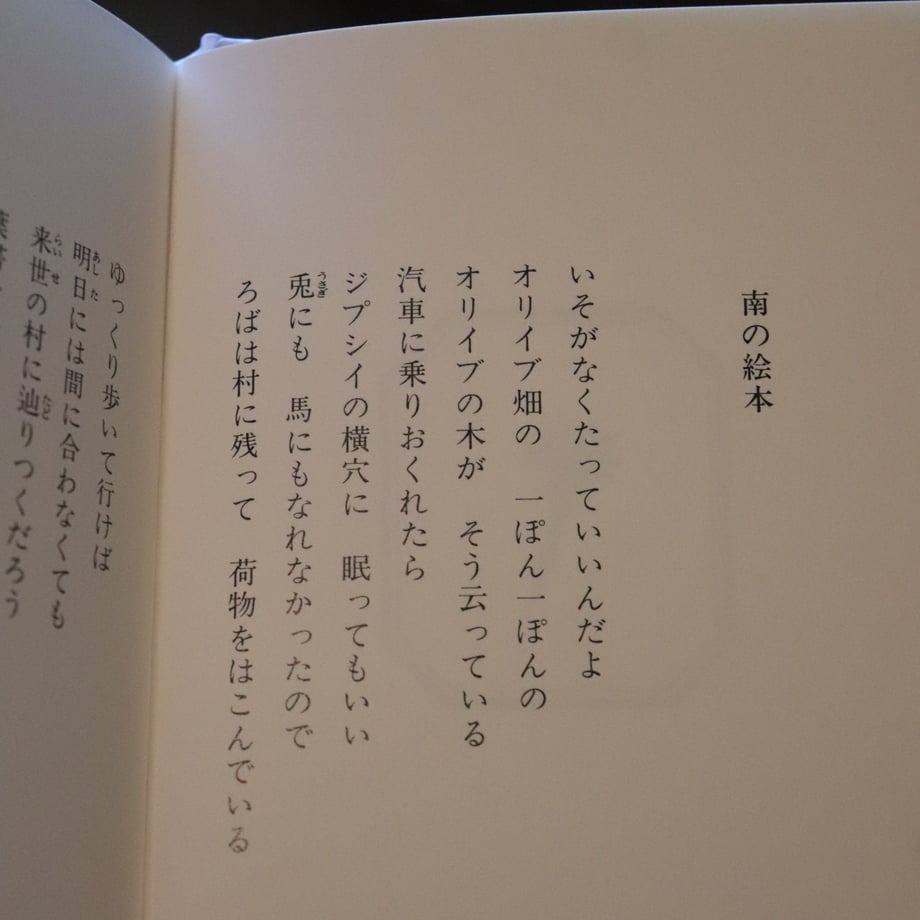 南の絵本
いそがなくたっていいんだよ
オリイブ畑の　一ぽん一ぽんの
オリイブの木が　そう云っている
汽車に乗りおくれたら
ジプシイの横穴に　眠ってもいい
兎にも　馬にもなれなかったので
ろばは村に残って　荷物をはこんでいる
ゆっくり歩いて行けば
明日には間に合わなくても
来世の村に辿りつくだろう